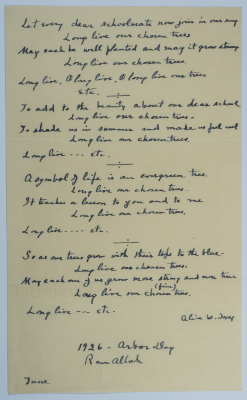 Let every dear schoolmate now join in our song
Long live our chosen trees
May each be well planted and may it grow strong
Long live our chosen trees.
Long live, O long live, O long live our trees
etc.
To add to the beauty about our dear school
Long live our chosen trees.
To shade us in summer and make us feel cool
Long live our chosen trees.
Long live --- etc.
A symbol of life is an evergreen tree
Long live our chosen trees.
It teaches a lesson to you and to me
Long live our chosen trees.
Long live ---- etc.
So as our trees grow with their tops to the blue-
Long live our chosen trees.
May each one of us grow more strong and more true
(fine)
Long live our chosen trees.
Long live --- etc.
Alice W. Jones
1926 - Arbor Day
Ram Allah
June